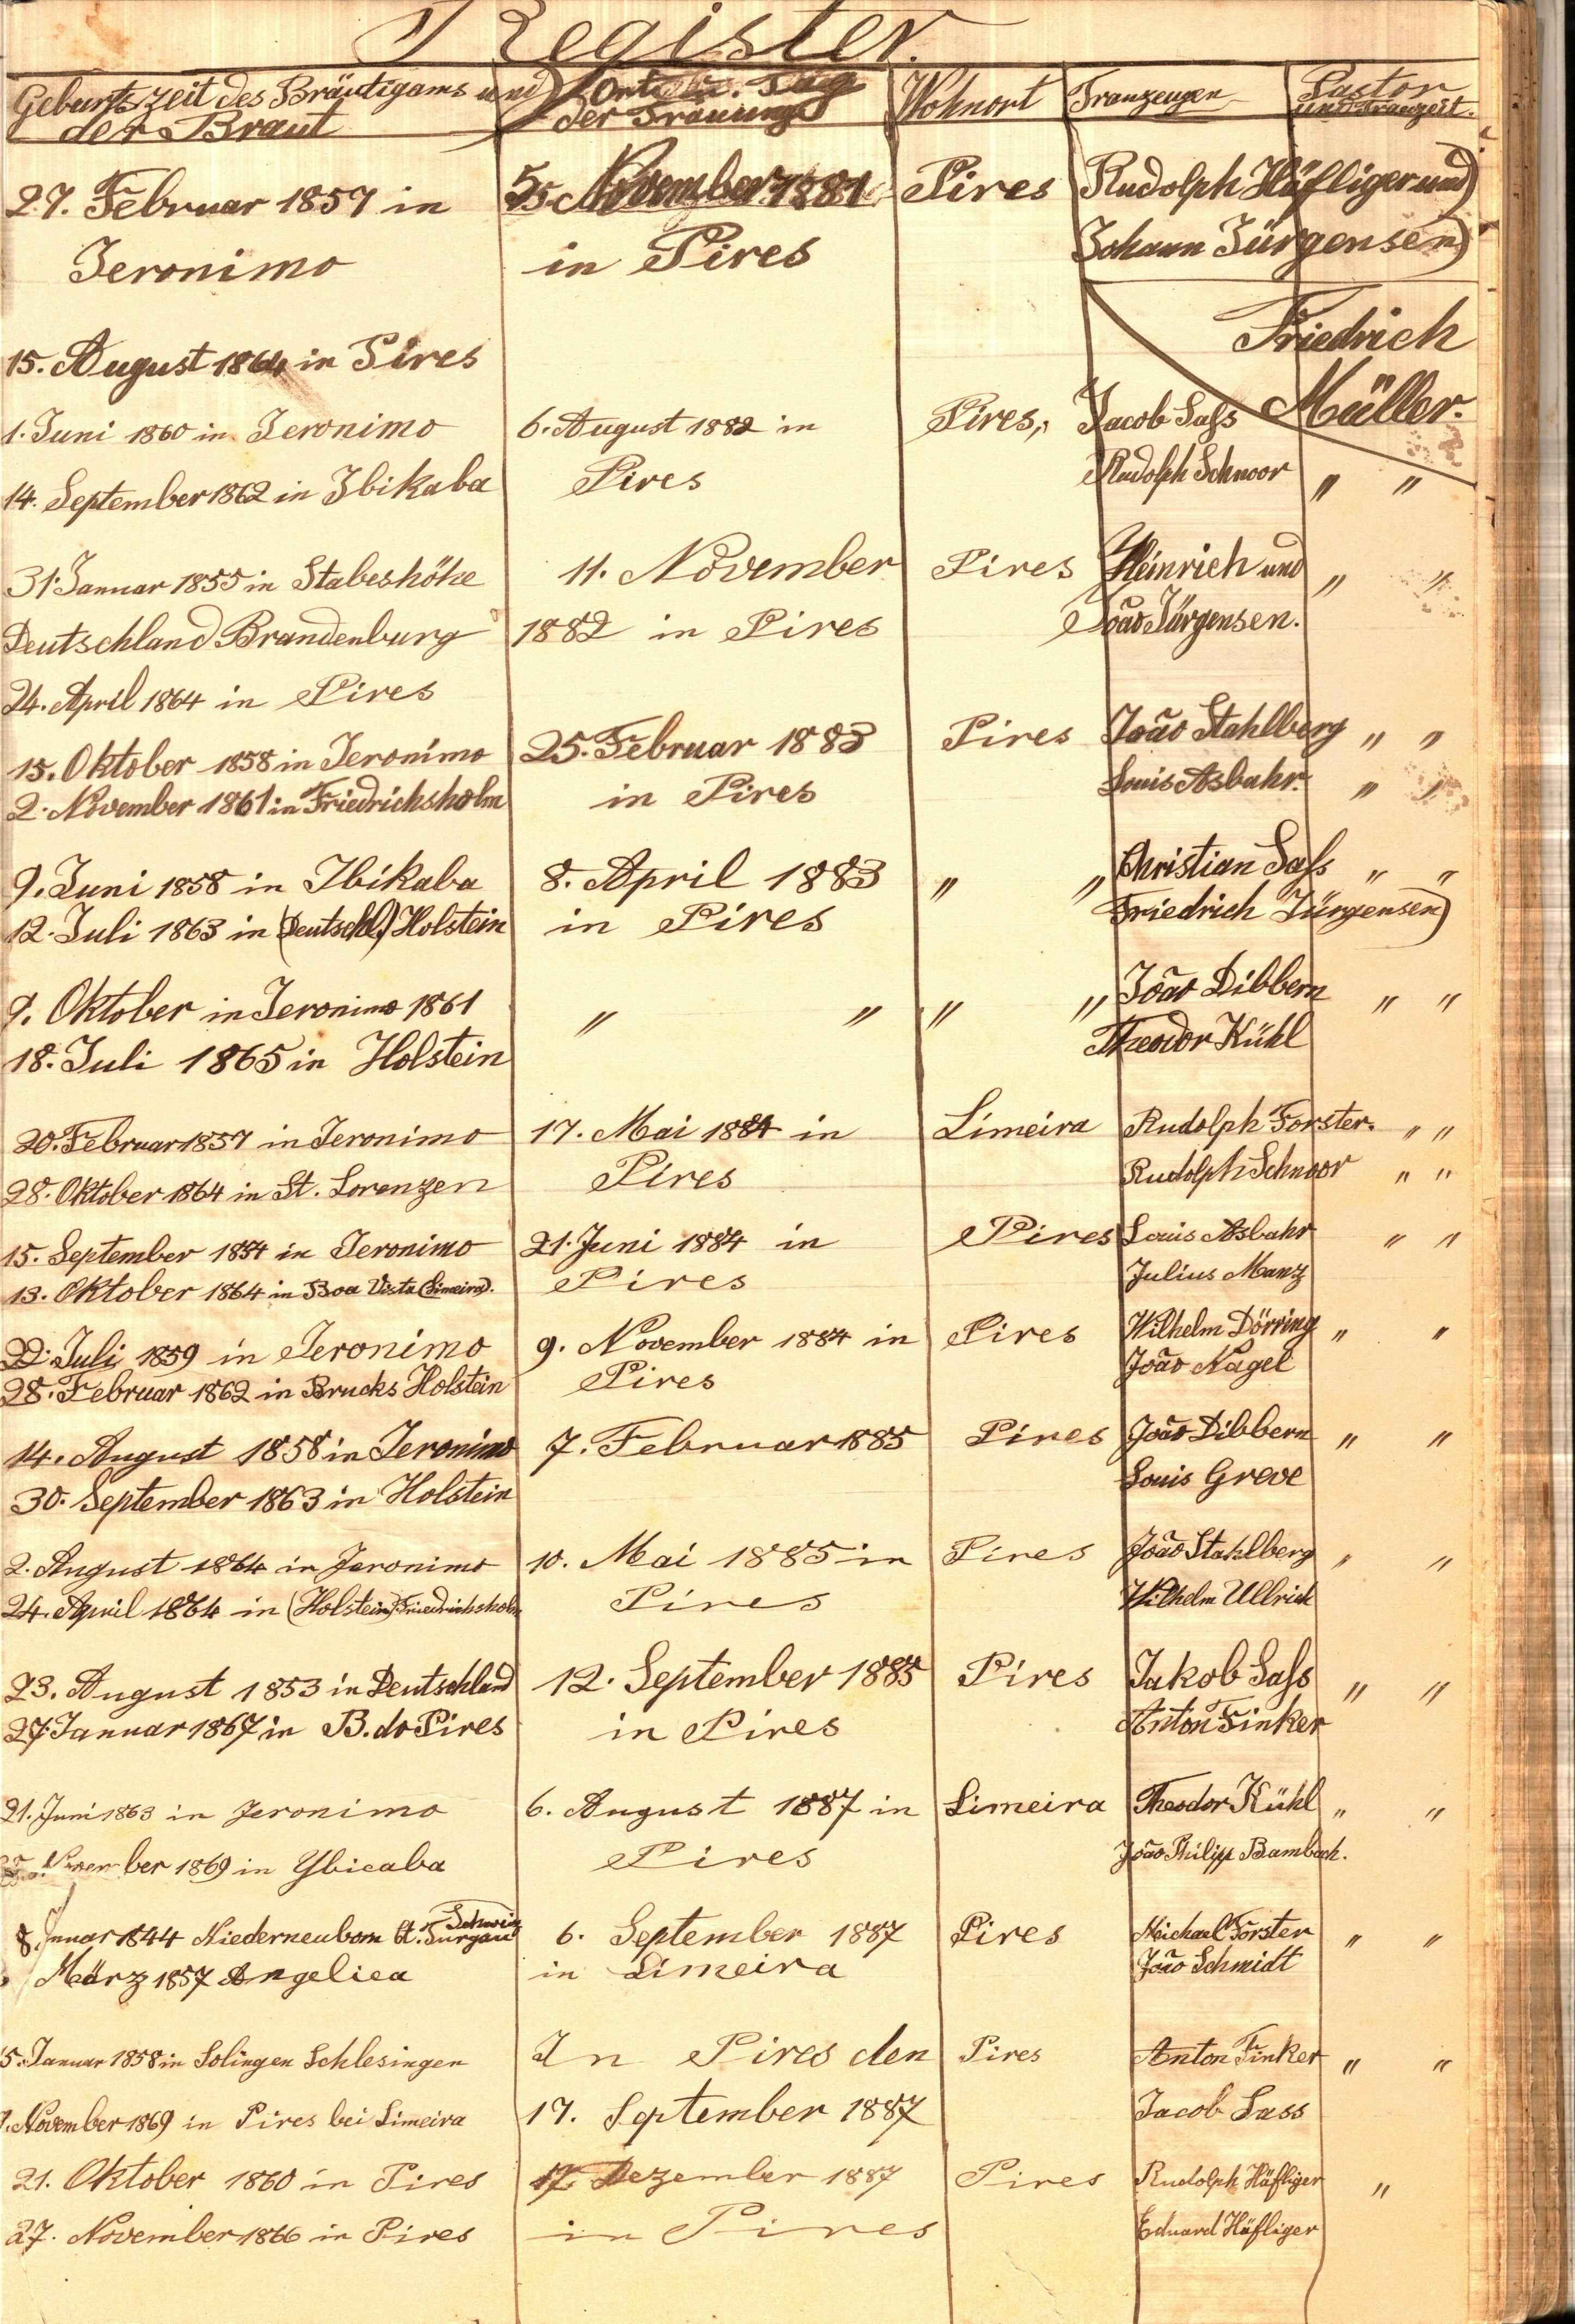 Register.
Geburtszeit des Bräutigams und der Braut
Ort u. Tag der Trauung
Wohnort
Trauzeugen
Pastor und Trauzeit.
27. Februar 1857 in 5. November 1881 Pires Rudolph Häfliger und
Jeronimo in Pires Johann Jürgensen
Friedrich
15. August 1864 in Pires
Müller.
1. Juni 1860 in Jeronimo 6. August 1882 in Pires, Jacob Saſs
14. September 1862 in Ibikaba Pires Rudolph Schnoor " "
31. Januar 1855 in Stabeshöhe 11. November Pires Heinrich und " "
Deutschland Brandenburg 1882 in Pires João Jürgensen.
24. April 1864 in Pires
15. Oktober 1858 in Jeronimo 25. Februar 1883 Pires João Stahlberg " "
2. November 1861 in Friedrichsholm in Pires Louis Asbahr. " "
9. Juni 1858 in Ibikaba 8. April 1883 " " Christian Saſs " "
12. Juli 1863 in (Deutschl.) Holstein in Pires Friedrich Jürgensen
9. Oktober in Jeronimo 1861 " " " " João Dibbern " "
18. Juli 1865 in Holstein Theodor Kühl
20. Februar 1857 in Jeronimo 17. Mai 1884 in Limeira Rudolph Forster. " "
28. Oktober 1864 in St. Lorenzen Pires Rudolph Schnoor " "
15. September 1854 in Jeronimo 21. Juni 1884 in Pires Louis Asbahr " "
13. Oktober 1864 in Boa Vista (Limeira). Pires Julius Manz
22. Juli 1859 in Jeronimo 9. November 1884 in Pires Wilhelm Dörring " "
28. Februar 1862 in Brucks Holstein Pires João Nagel
14. August 1858 in Jeronimo 7. Februar 1885 Pires João Dibbern " "
30. September 1863 in Holstein Louis Greve
2. August 1864 in Jeronimo 10. Mai 1885 in Pires João Stahlberg " "
24. April 1864 in (Holstein) Friedrichsholm Pires Wilhelm Ullrich
23. August 1853 in Deutschland 12. September 1885 Pires Jakob Saſs " "
27. Januar 1867 in B. do Pires in Pires Anton Finker
21. Juni 1863 in Jeronimo 6. August 1887 in Limeira Theodor Kühl " "
November 1869 in Ybicaba Pires João Philipp Bambach.
8. Januar 1844 Niederneubom Ct. Turgau Schweiz 6. September 1887 Pires Meichael Forster " "
März 1857 Angelica in Limeira João Schmidt
5. Januar 1858 in Solingen Schlesingen In Pires den Pires Anton Finker " "
November 1869 in Pires bei Limeira 17. September 1887 Jacob Sass
21. Oktober 1860 in Pires 17. Dezember 1887 Pires Rudolph Häfliger "
27. November 1866 in Pires in Pires Eduard Häfliger